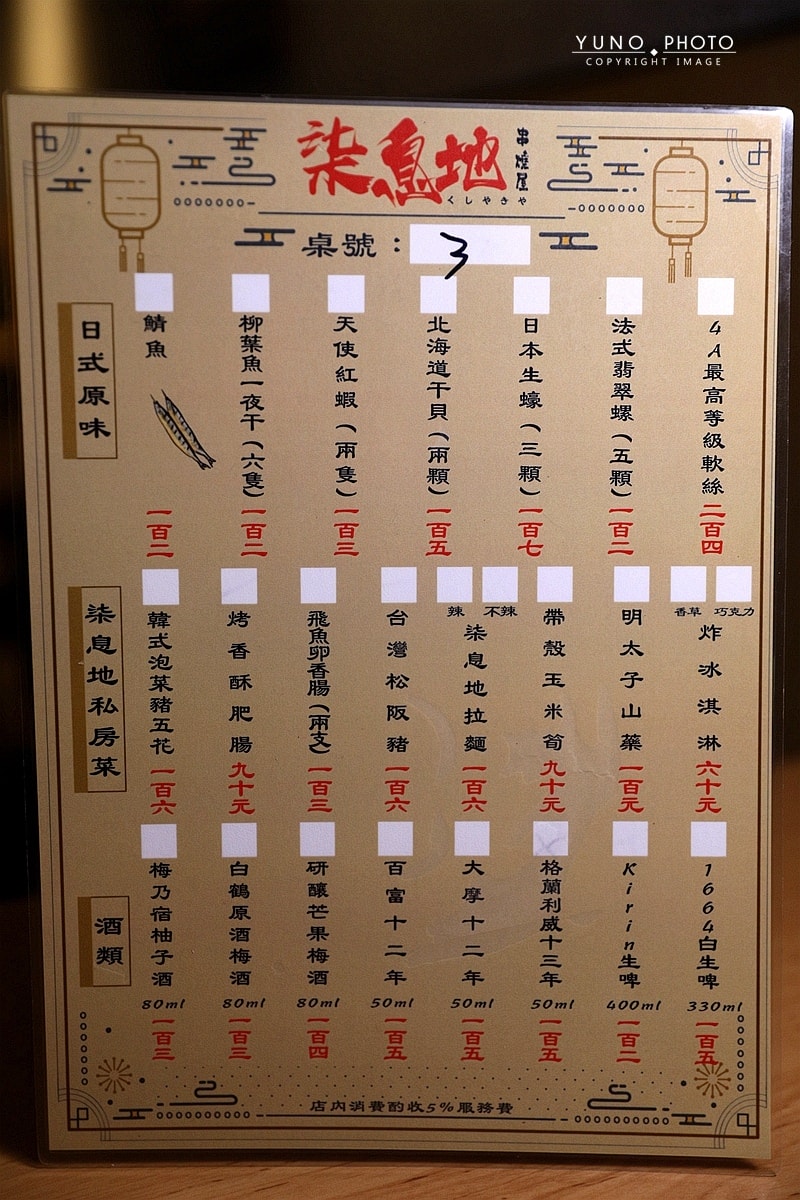 YUNO PHOTO
COPYRIGHT IMAGE
柒息地
串燒屋
くしやきや
桌號：3
日式原味
鯖魚
一百二
柳葉魚一夜干(六隻)
一百二
天使紅蝦(兩隻)
一百三
北海道干貝(兩顆)
一百五
日本生蠔(三顆)
一百七
法式翡翠螺(五顆)
一百二
4A最高等級軟絲
二百四
柒息地私房菜
韓式泡菜豬五花
一百六
烤香酥肥腸
九十元
飛魚卵香腸(兩支)
一百三
台灣松阪豬
一百六
辣 不辣
柒息地拉麵
一百六
帶殼玉米筍
九十元
明太子山藥
一百元
香草 巧克力
炸冰淇淋
六十元
酒類
梅乃宿柚子酒
80ml
一百三
白鶴原酒梅酒
80ml
一百三
研釀芒果梅酒
80ml
一百四
百富十二年
50ml
一百五
大摩十二年
50ml
一百五
格蘭利威十三年
50ml
一百五
Kirin生啤
400ml
一百二
1664白生啤
330ml
一百五
店內消費酌收5%服務費